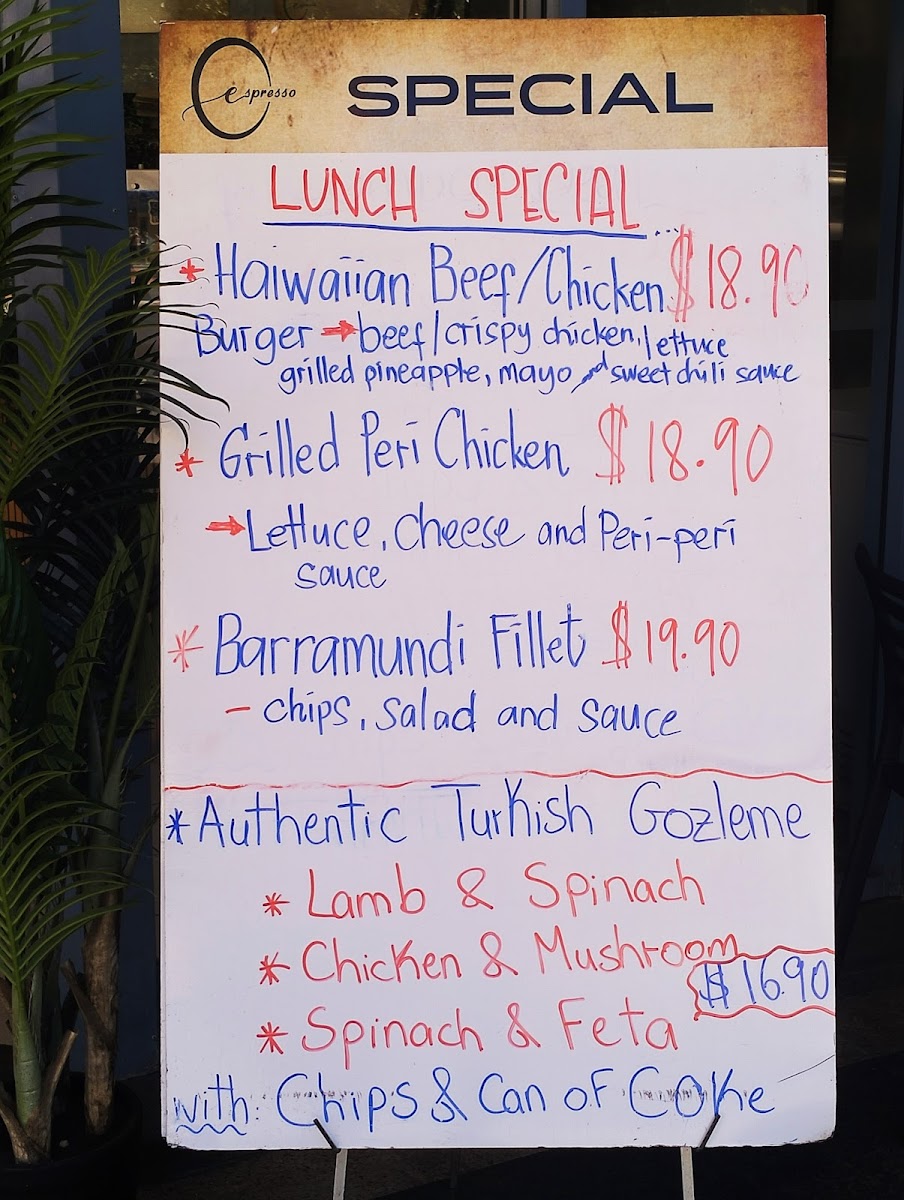 espresso
SPECIAL
LUNCH SPECIAL
* Haiwaiian Beef/Chicken $18.90
Burger → beef/crispy chicken, lettuce
grilled pineapple, mayo and sweet chili sauce
* Grilled Peri Chicken $18.90
→ Lettuce, Cheese and Peri-peri
sauce
* Barramundi Fillet $19.90
- chips, salad and sauce
* Authentic Turkish Gozleme
* Lamb & Spinach
* Chicken & Mushroom
$16.90
* Spinach & Feta
with: Chips & Can of Coke